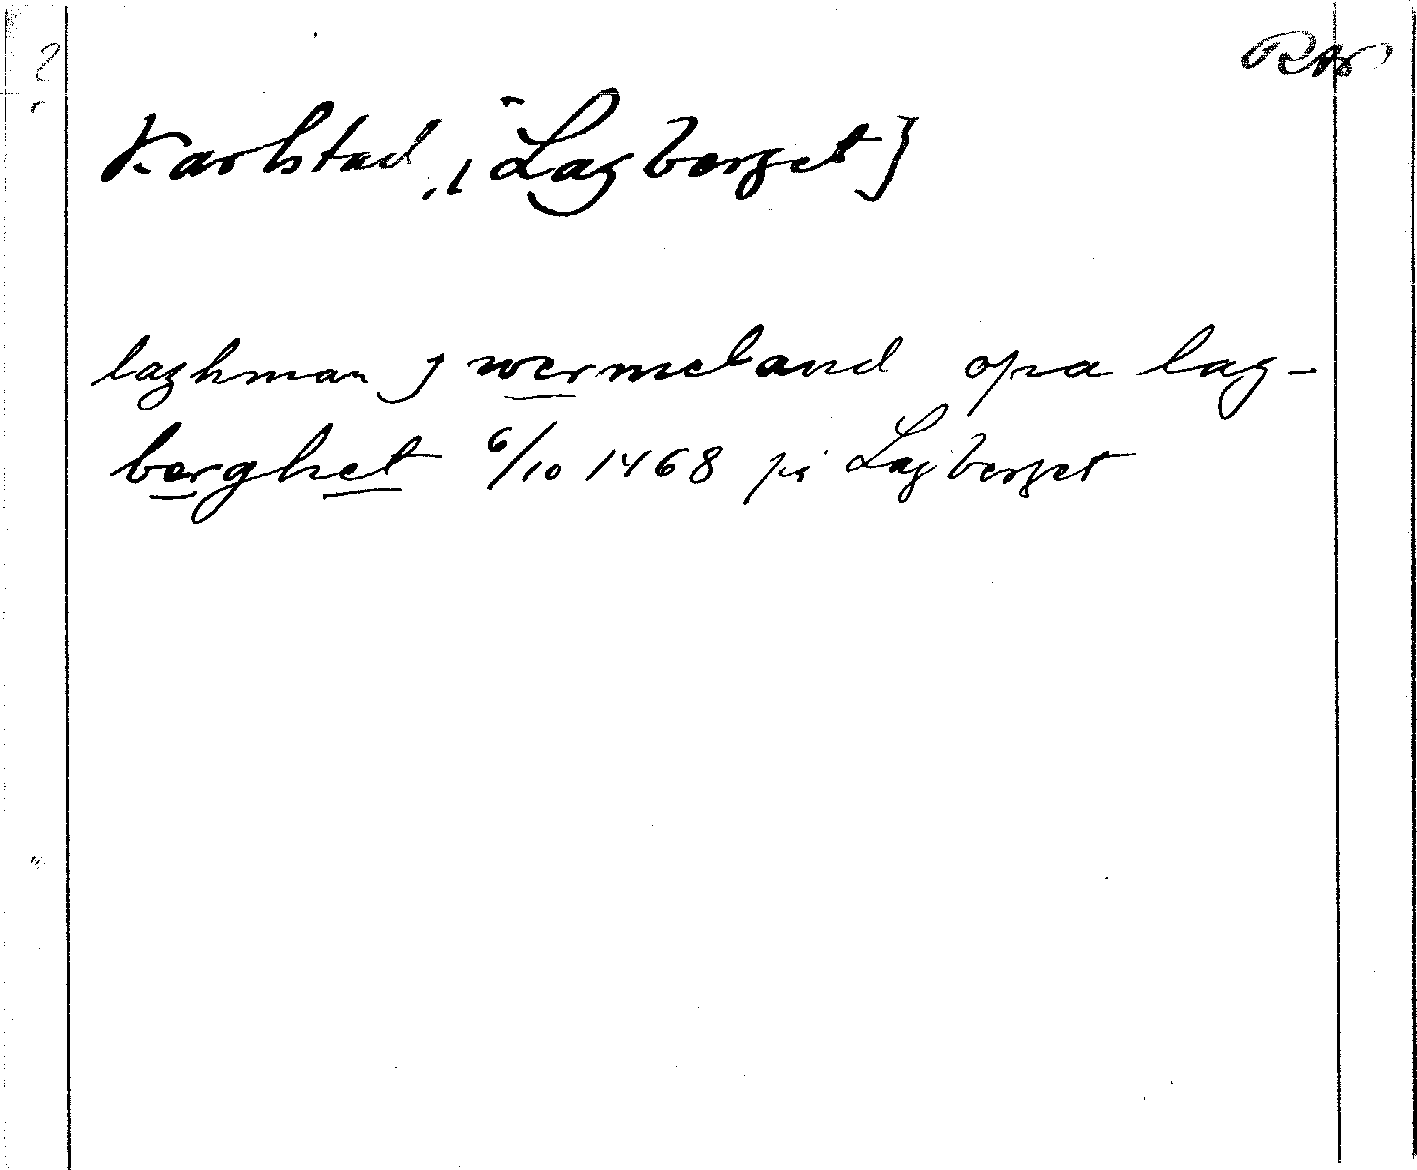 RAp
Karlstad, [Lagberget]
laghman j wermeland opa lag-
berghet 6/10 1468 på Lagberget